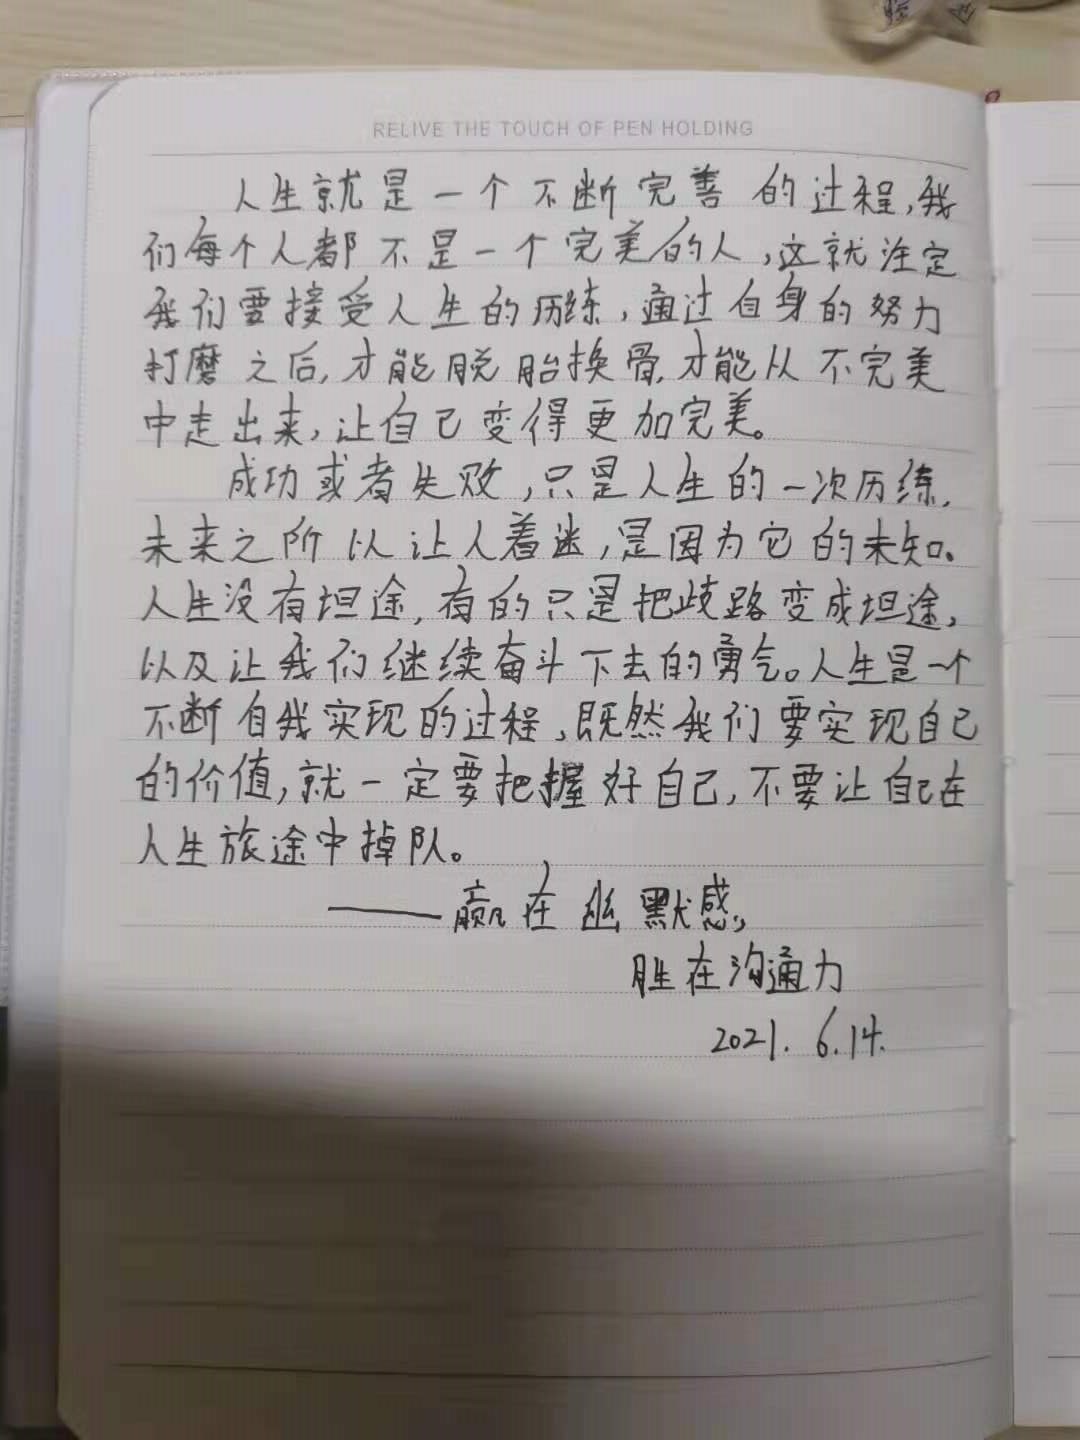 RELIVE THE TOUCH OF PEN HOLDING
人生就是一个不断完善的过程,我
们每个人都不是一个完美的人,这就注定
我们要接受人生的历练,通过自身的努力
打磨之后,才能脱胎换骨,才能从不完美
中走出来,让自己变得更加完美。
成功或者失败,只是人生的一次历练,
未来之所以让人着迷,是因为它的未知。
人生没有坦途,有的只是把歧路变成坦途,
以及让我们继续奋斗下去的勇气。人生是一个
不断自我实现的过程,既然我们要实现自己
的价值,就一定要把握好自己,不要让自己在
人生旅途中掉队。
——赢在幽默感,
胜在沟通力
2021.6.14.